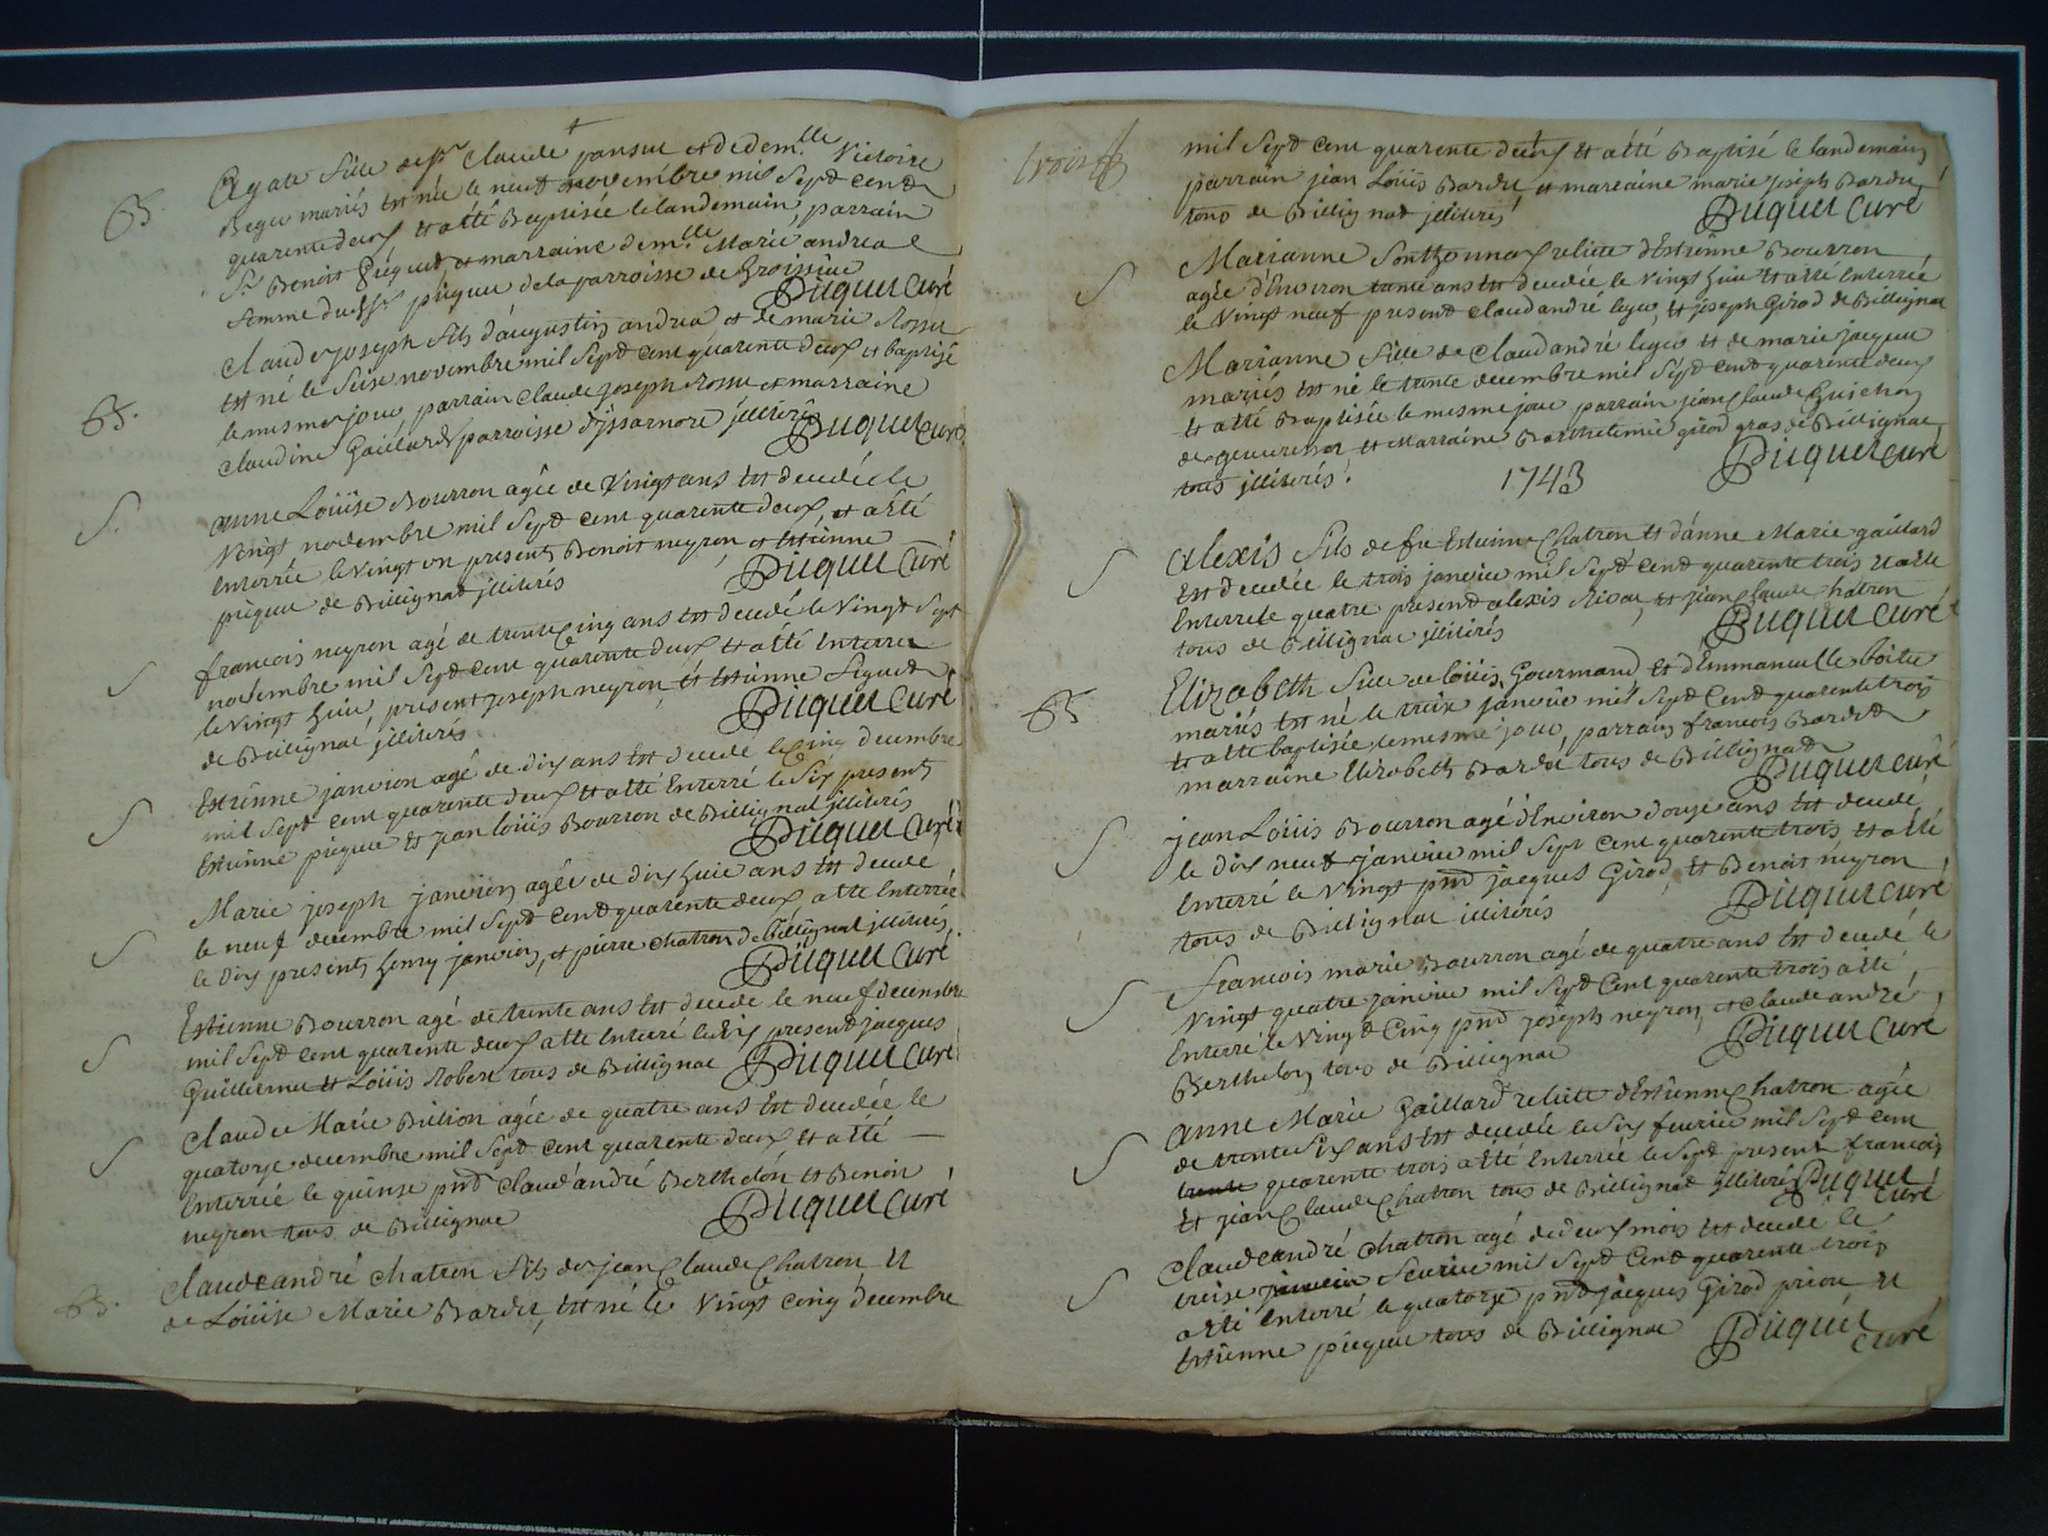 B. Agate fille de Sr Claude pansue et de dem.lle Victoire
Begue mariés est née le neuf novembre mil Sept cent
quarente deux et a été Baptisée le landemain, parrain
Sr Benoist et marraine dem.lle Marie andrea
femme dudSr piquet de la parroisse de Groissiac
Piquet Curé
B. Claude joseph fils d'augustin andrea et de marie Rossu
est né le Seise novembre mil Sept cent quarente deux et baptisé
le mesme jour parrain Claude joseph Rossu et marraine
Claudine Gaillard parroisse d'yssarnore jlliterés
Piquet Curé
S. anne Loüise Bourron agée de Vingt ans est decedée le
Vingt novembre mil Sept cent quarente deux, et a été
Enterrée le vingt un present Benoit neyron et Estienne
piquet de Billignat jlliterés
Piquet Curé
S francois neyron agé de trente Cinq ans est decedé le Vingt Sept
novembre mil Sept cent quarente deux et a été Enterré
le Vingt huit, present joseph neyron et Estienne
de Billignat jlliterés
Piquet Curé
S Estienne janvion agé de dix ans est decedé le Cinq decembre
mil Sept cent quarente deux et a été Enterré le Six present
Estienne piquet et jean loüis Bourron de Billignat jlliterés
Piquet Curé
S Marie joseph janvion agée de dix huit ans est decedé
le neuf decembre mil Sept cent quarente deux a été Enterrée
le dix present henry janvion, et pierre chatron de Billignat jlliterés
Piquet Curé
S Estienne Bourron agé de trente ans est decedé le neuf decembre
mil Sept cent quarente deux a été Enterré le dix present jacques
Guillerme et Loüis Robert tous de Billignat Piquet Curé
S Claude Marie Billion agée de quatre ans est decedée le
quatorze decembre mil Sept cent quarente deux et a été
Enterrée le quinse pnt Claud'andré Berthelon et Benoit
neyron tous de Billignat
Piquet Curé
B. Claudeandré chatron fils de jean Claude Chatron et
de Loüise Marie Bardet, est né le Vingt cinq decembre
trois
mil Sept cent quarente deux et a été Baptisé le landemain
parrain jean Loüis Bardet et marraine marie joseph Bardet
tous de Billignat jlliterés
Piquet Curé
S Marianne Sonthonnax relicte d'Estienne Bourron
agée d'Environ trante ans est decedée le Vingt huit et a été Enterrée
le Vingt neuf present claudandré leger, et joseph Girod de Billignat
Marianne fille de Claudandré leger et de marie jacquet
mariés est né le trente decembre mil Sept cent quarente deux
et a été Baptisée le mesme jour parrain jean Claude Guichon
de et Marraine Barthelemie girod gras de Billignat
tous jlliterés.
Piquet Curé
1743
S Alexis fils de feu Estienne Chatron et d'anne Marie gaillard
Est decedée le trois janvier mil Sept cent quarente trois et a été
Enterré le quatre present alexis et jean Claude Chatron
tous de Billignat jlliterés
Piquet Curé
B Elizabeth fille de loüis Gourmand et d'Emmanuelle
mariés est né le treise janvier mil Sept cent quarente trois
et a été baptisée le mesme jour, parrain francois Bardet
marraine Elizabeth Bardet tous de Billignat
Piquet Curé
S jean Loüis Bourron agé d'Environ douze ans est decedé
le dix neuf janvier mil Sept cent quarente trois, et a été
Enterré le Vingt pnt jacques Girod, et Benoit neyron
tous de Billignat illiterés
Piquet Curé
S Francois marie Bourron agé de quatre ans est decedé le
Vingt quatre janvier mil Sept Cent quarente trois a été
Enterré le Vingt Cinq pnt joseph neyron, et Claude andré
Berthelon tous de Billignat
Piquet Curé
S anne Marie Gaillard relicte d'Estienne Chatron agée
de trente Six ans est decedée le Six fevrier mil Sept cent
trente quarente trois a été Enterrée le Sept present francois
et jean Claude Chatron tous de Billignat jlliterés Piquet
Curé
S Claudeandré Chatron agé de deux mois est decedé le
treise janvier fevrier mil Sept Cent quarente trois
a été Enterré le quatorze pnt jacques Girod prion et
Estienne piquet tous de Billignat
Piquet
Curé